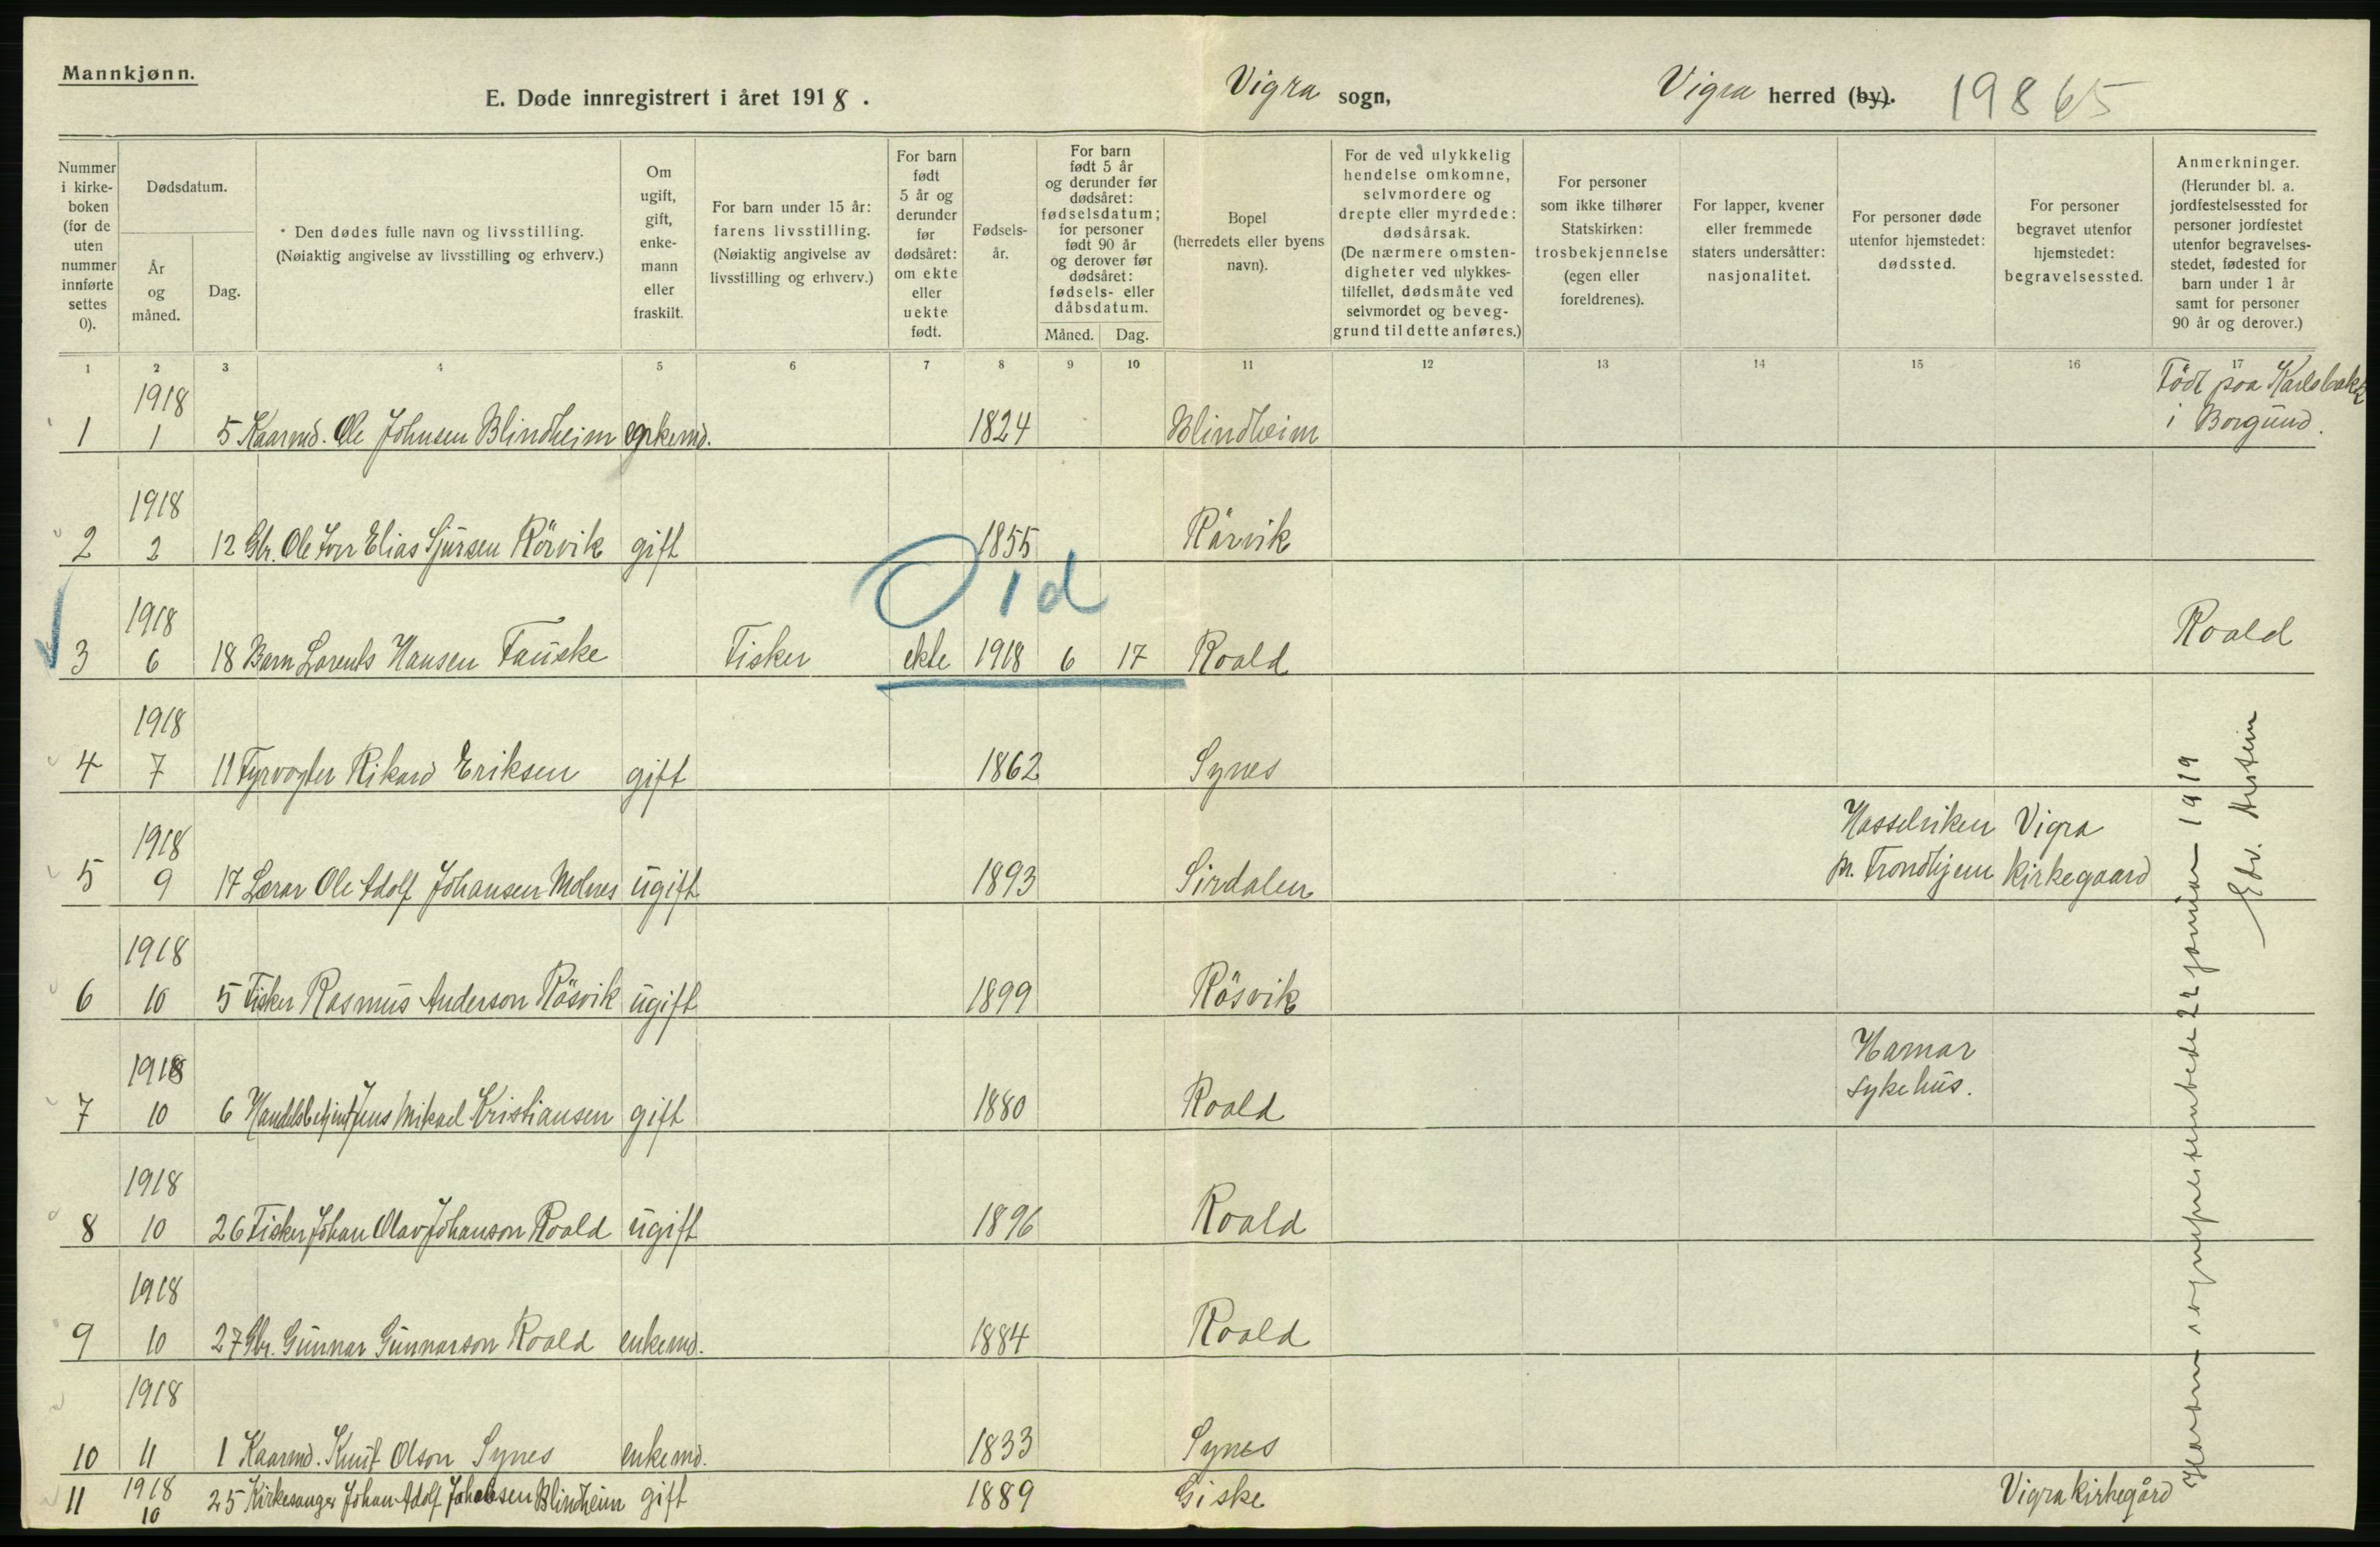 Mannkjønn.
E. Døde innregistrert i året 1918.
Vigra sogn,
Vigra herred (by).
19865
Nummer i kirkeboken (for de uten nummer innførte settes 0).
Dødsdatum.
År og måned.
Dag.
* Den dødes fulle navn og livsstilling.
(Nøiaktig angivelse av livsstilling og erhverv.)
Om ugift, gift, enkemann eller fraskilt.
For barn under 15 år: farens livsstilling. (Nøiaktig angivelse av livsstilling og erhverv.)
For barn født 5 år og derunder før dødsåret: om ekte eller uekte født.
Fødselsår.
For barn født 5 år og derunder før dødsåret: fødselsdatum; for personer født 90 år og derover før dødsåret: fødsels- eller dåbsdatum.
Måned. Dag.
Bopel (herredets eller byens navn).
For de ved ulykkelig hendelse omkomne, selvmordere og drepte eller myrdede: dødsårsak. (De nærmere omstendigheter ved ulykkestilfellet, dødsmåte ved selvmordet og beveggrund til dette anføres.)
For personer som ikke tilhører Statskirken: trosbekjennelse (egen eller foreldrenes).
For lapper, kvener eller fremmede staters undersåtter: nasjonalitet.
For personer døde utenfor hjemstedet: dødssted.
For personer begravet utenfor hjemstedet: begravelsessted.
Anmerkninger. (Herunder bl. a. jordfestelsessted for personer jordfestet utenfor begravelsesstedet, fødested for barn under 1 år samt for personer 90 år og derover.)
1 2 3 4 5 6 7 8 9 10 11 12 13 14 15 16 17
1 1918 1 5 Kaarmd. Ole Johnsen Blindheim enkemd. 1824 Blindheim Född paa Karlsbakk i Borgund.
2 1918 2 12 Gbr. Ole Iver Elias Sjursen Rörvik gift 1855 Rörvik
Oid
3 1918 6 18 Barn Lorents Hansen Tauske Fisker ekte 1918 6 17 Roald Roald
4 1918 7 11 Fyrvogter Rikard Eriksen gift 1862 Synes
5 1918 9 17 Lærar Ole Adolf Johansen Molnes ugift 1893 Sirdalen Hasselviken pr. Trondhjem Vigra Kirkegaard
6 1918 10 5 Fisker Rasmus Anderson Rösvik ugift 1899 Rösvik
7 1918 10 6 Handelsbetjent Jens Mikael Kristiansen gift 1880 Roald Hamar sykehus.
8 1918 10 26 Fisker Johan Olav Johanson Roald ugift 1896 Roald
9 1918 10 27 Gbr. Gunnar Gunnarson Roald enkemd. 1884 Roald
10 1918 11 1 Kaarmd. Knut Olson Synes enkemd. 1833 Synes
11 1918 10 25 Kirkesanger Johan Adolf Johansen Blindheim gift 1889 Giske Vigra kirkegård
sogneprestembede 22 januar 1919
Edv.